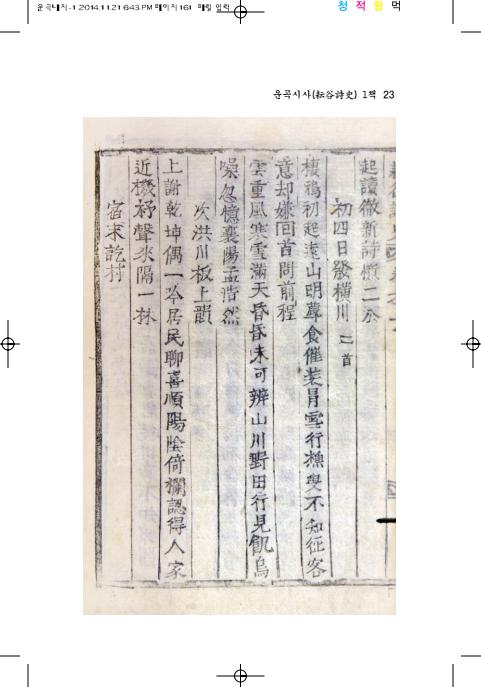 운곡내지-1 2014.11.21 6:43 PM 페이지161 매킨 입력
청 적 황 먹
운곡시사(耘谷詩史) 1책 23
起讀微新詩慣二分
初四日發橫川 二首
棲鴉初起遠山明蓐食催裝冒雪行樵叟不知征客
意却嫌回首問前程
雲重風寒雪滿天昏昏未可辨山川野田行見飢烏
噪忽憶襄陽孟浩然
次洪川板上韻
上謝乾坤偶一吟居民聊喜順陽陰倚欄認得人家
近機杼聲來隔一林
宿末訖村